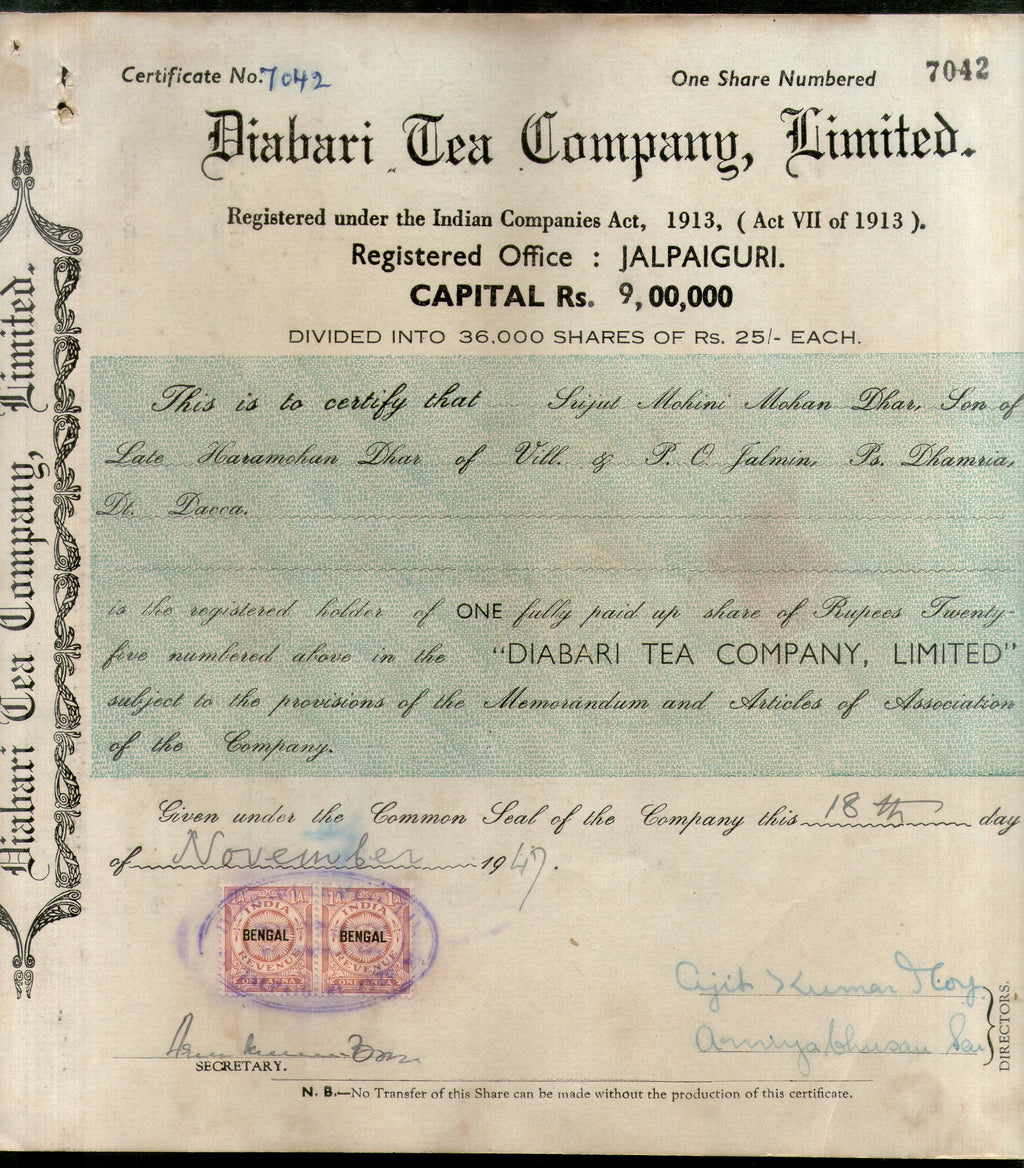 Certificate No. 7042
One Share Numbered 7042
Diabari Tea Company, Limited.
Registered under the Indian Companies Act, 1913, ( Act VII of 1913 ).
Registered Office : JALPAIGURI.
CAPITAL Rs. 9,00,000
DIVIDED INTO 36,000 SHARES OF Rs. 25/- EACH.
This is to certify that Srijut Mohini Mohan Dhar, Son of
Late Haramohan Dhar of Vill. & P. O. Jalmin, Ps. Dhamria,
Dt. Dacca.
is the registered holder of ONE fully paid up share of Rupees Twenty-
five numbered above in the "DIABARI TEA COMPANY, LIMITED"
subject to the provisions of the Memorandum and Articles of Association
of the Company.
Given under the Common Seal of the Company this 18th day
of November 1947.
1A 1A 1A 1A
INDIA INDIA
BENGAL BENGAL
REVENUE REVENUE
ONE ANNA ONE ANNA
Ajit Kumar Roy
Amiyabhusan Sen
DIRECTORS.
SECRETARY.
N. B.—No Transfer of this Share can be made without the production of this certificate.
Diabari Tea Company, Limited.